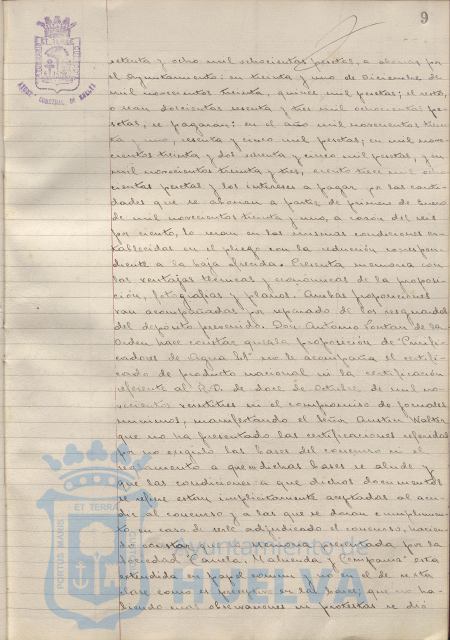 9
setenta y ocho mil ochocientas pesetas, a abonar por
el Ayuntamiento: en treinta y uno de Diciembre de
mil novecientos treinta, quince mil pesetas; el resto,
o sean doscientas sesenta y tres mil ochocientas pe-
setas, se pagaran: en el año mil novecientos trein-
ta y uno, sesenta y cinco mil pesetas; en mil nove-
cientos treinta y dos y cinco mil pesetas, y en
mil novecientos treinta y tres, ciento trece mil ocho
cientas pesetas y los intereses a pagar por las canti-
dades que se abonan a partir de primero de Enero
de mil novecientos treinta y uno, a razon del seis
por ciento, lo sean en las mismas condiciones es-
tablecidas en el pliego con la reducción correspon-
diente a la baja ofrecida. Presenta memoria con
las ventajas técnicas y económicas de la proposi-
ción, fotografías y planos. Ambas proposiciones
van acompañadas por separado de los resguardos
del depósito prevenido. Don Antonio de la
Orden hace constar que a la proposición de "Purifi-
cadores de Agua Sd" no le acompaña el certifi-
cado de producto nacional ni la certificación
referente al R.D. de doce de Octubre de mil no-
vecientos veintitres ni el compromiso de jornales
minimos; manifestando el señor Walter
que no ha presentado las certificaciones referidas
por no exigirlo las bases del concurso ni el
reglamento a que dichas bases se alude y
que las condiciones a que dichos documentos
se refiere estan implicitamente aceptadas al acu-
dir al concurso y a las que se daran cumplimien-
to, en caso de serle adjudicado el concurso, hacien-
do constar memoria presentada por la
Sociedad "Carrela, Maluenda y Compañia" está
extendida en papel comun y no en el de sexta
clase como es preceptivo en las bases; que no ha-
biendo mas observaciones ni protestas se dió
ET TERRAE
PORTUS MARIS
Ayuntamiento de
HUELVA